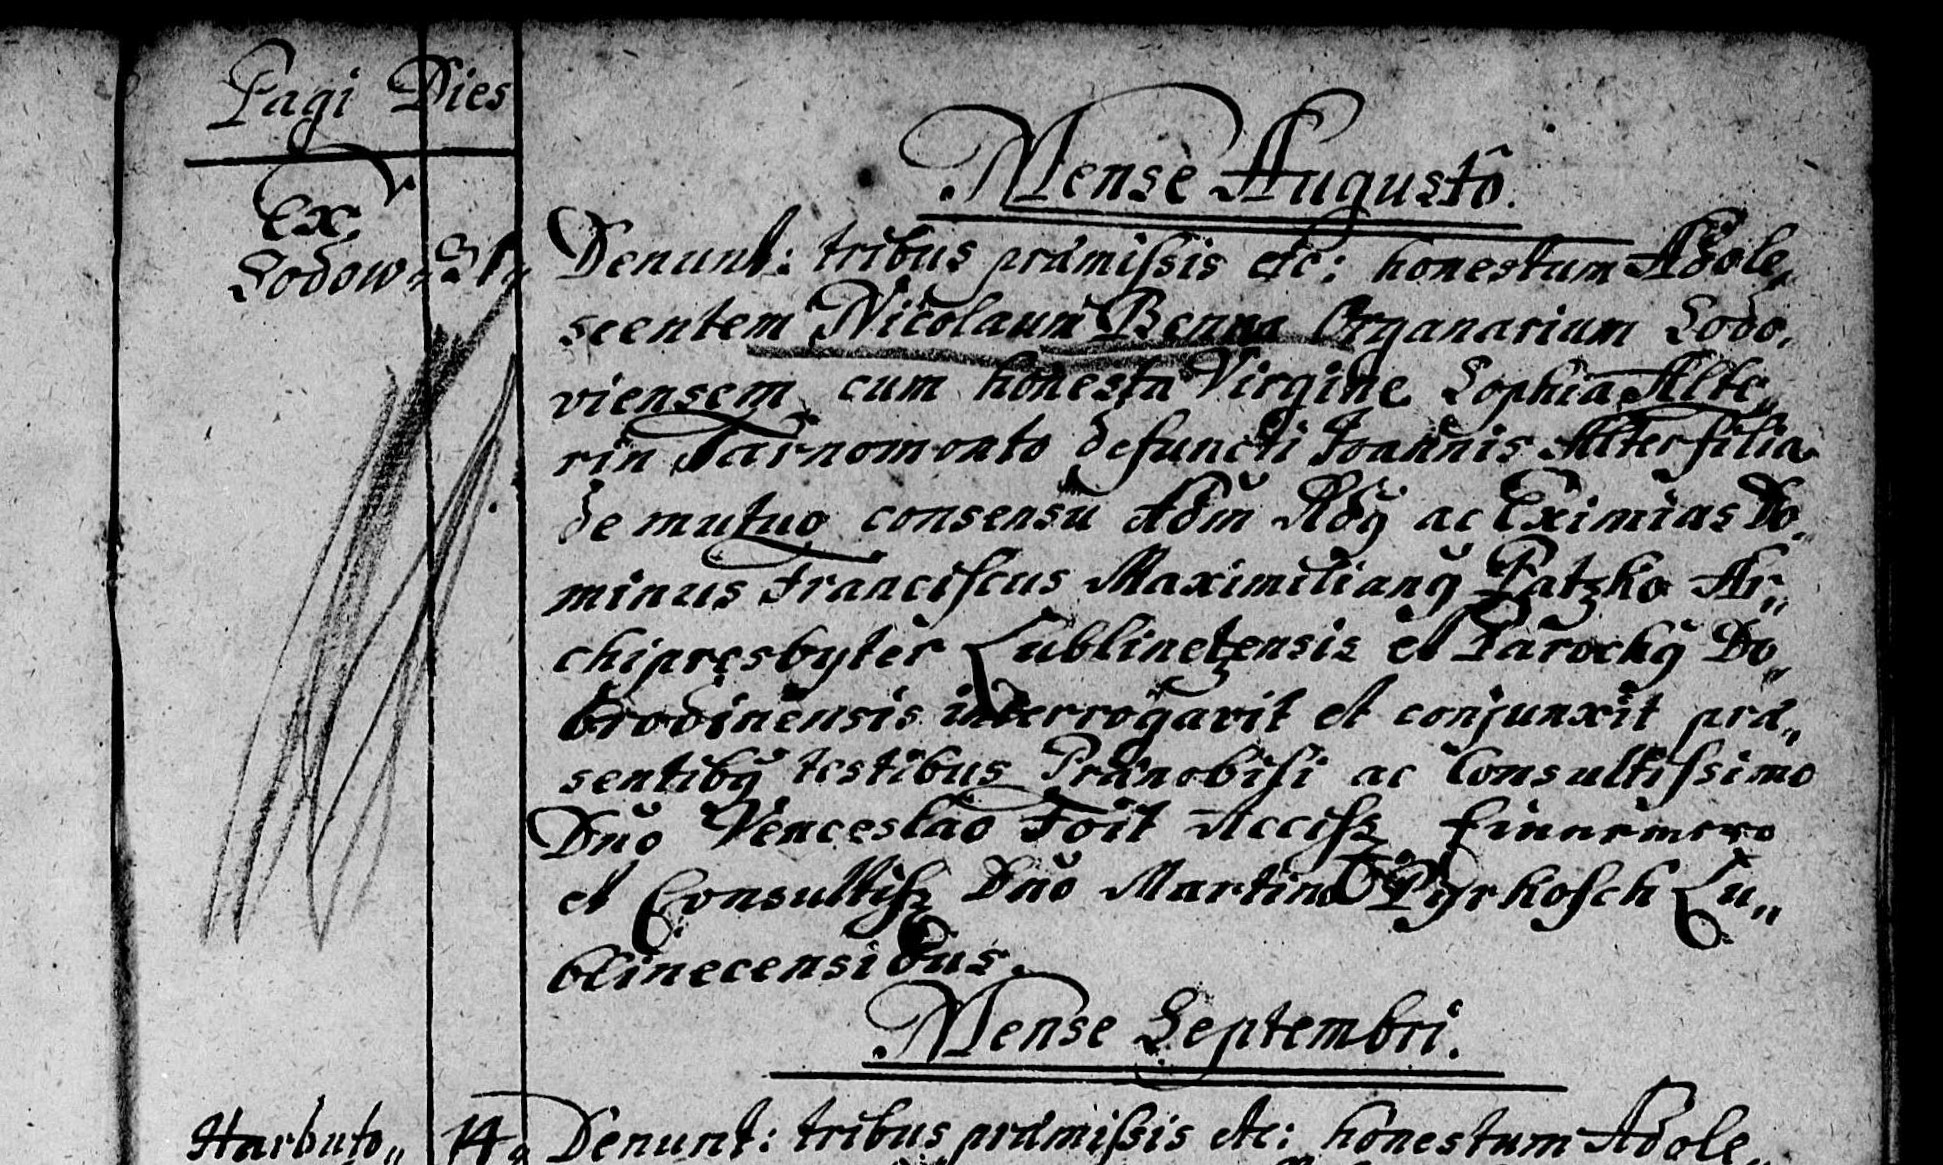 Pagi Dies
Mense Augustô.
Ex
Sodow „21„
Denunt: tribus præmissis etc: honestum Adole„
scentem Nicolaum Benna Organarium Sodo„
viensem cum honesta Virgine Sophia Alte„
rin Tarnomonto defuncti Joannis Alter filia
de mutuo consensu Adm Rdg ac Eximias Do„
minus Franciscus Maximiliang Patzko Ar„
chipresbyter Lublinetzensis et Parochg Do„
brodinensis interrogavit et conjunxit præ„
sentibg testibus Prænobili ac Consultissimo
Dno Venceslao Foit Acciss
et Consultiss Dno Martino Pyrkosch Lu„
blinecensibus.
Mense Septembri.
Harbuto„ 14„ Denunt: tribus præmissis etc: honestum Adole„